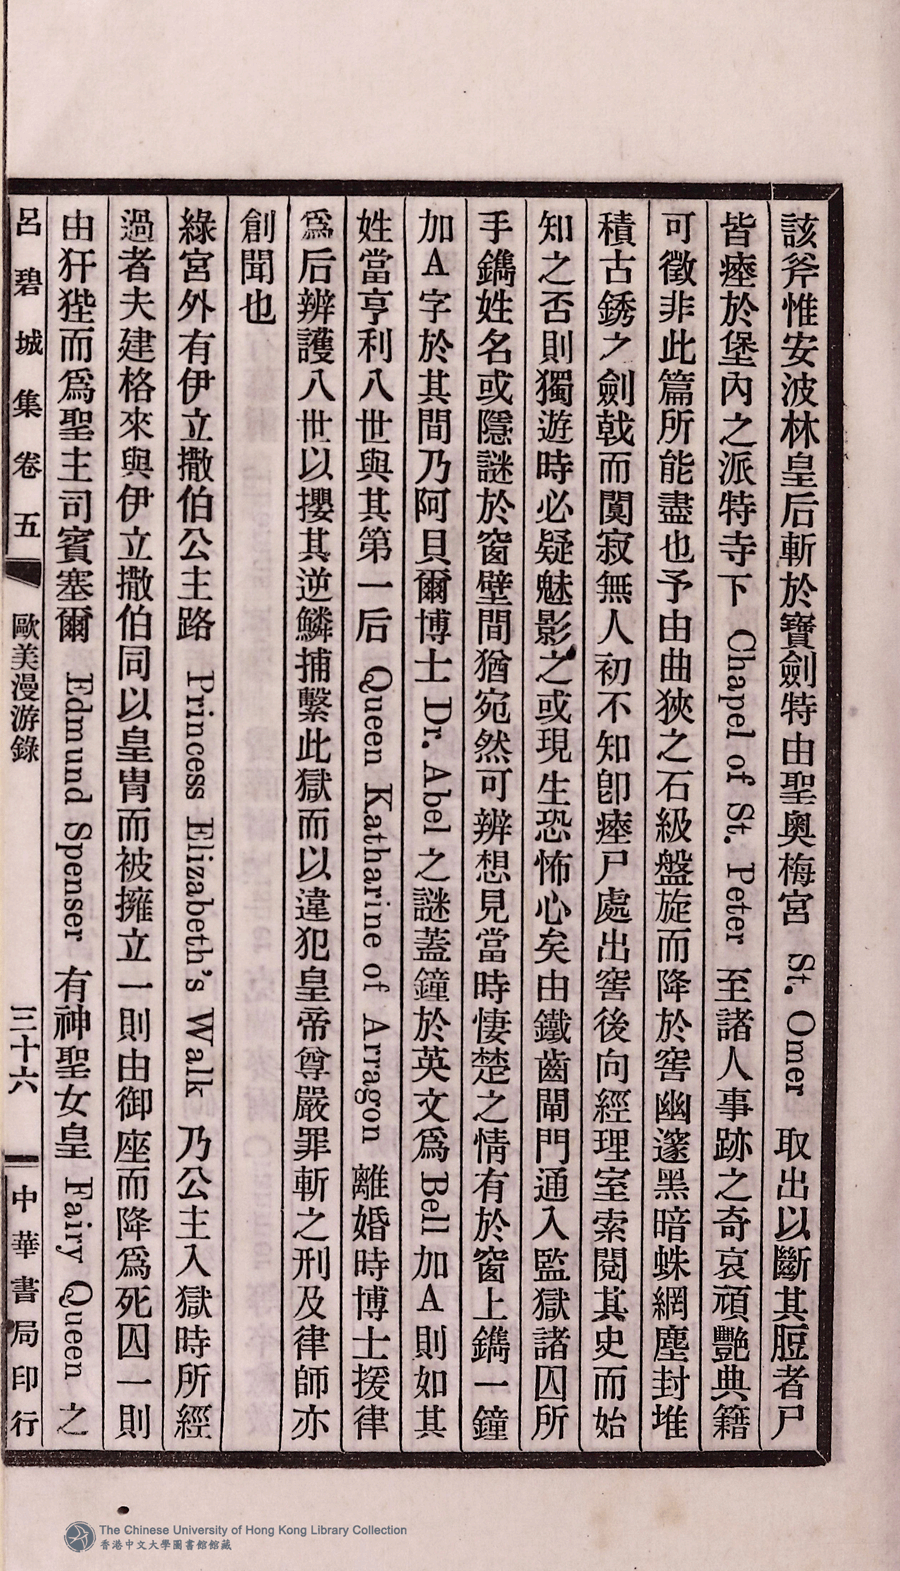 該斧惟安波林皇后斬於寶劍特由聖奧梅宮 St. Omer 取出以斷其脰者尸
皆瘞於堡內之派特寺下 Chapel of St. Peter 至諸人事跡之奇哀頑艷典籍
可徵非此篇所能盡也予由曲狹之石級盤旋而降於窖幽邃黑暗蛛網塵封堆
積古銹之劍戟而闃寂無人初不知卽瘞尸處出窖後向經理室索閱其史而始
知之否則獨遊時必疑魅影之或現生恐怖心矣由鐵齒閘門通入監獄諸囚所
手鐫姓名或隱謎於窗壁間猶宛然可辨想見當時悽楚之情有於窗上鐫一鐘
加A字於其間乃阿貝爾博士 Dr. Abel 之謎蓋鐘於英文爲 Bell 加A則如其
姓當亨利八世與其第一后 Queen Katharine of Arragon 離婚時博士援律
爲后辨護八世以攖其逆鱗捕繫此獄而以違犯皇帝尊嚴罪斬之刑及律師亦
創聞也
綠宮外有伊立撒伯公主路 Princess Elizabeth's Walk 乃公主入獄時所經
過者夫建格來與伊立撒伯同以皇冑而被擁立一則由御座而降爲死囚一則
由犴狴而爲聖主司賓塞爾 Edmund Spenser 有神聖女皇 Fairy Queen 之
呂碧城集卷五 歐美漫游錄 三十六 中華書局印行
The Chinese University of Hong Kong Library Collection
香港中文大學圖書館館藏